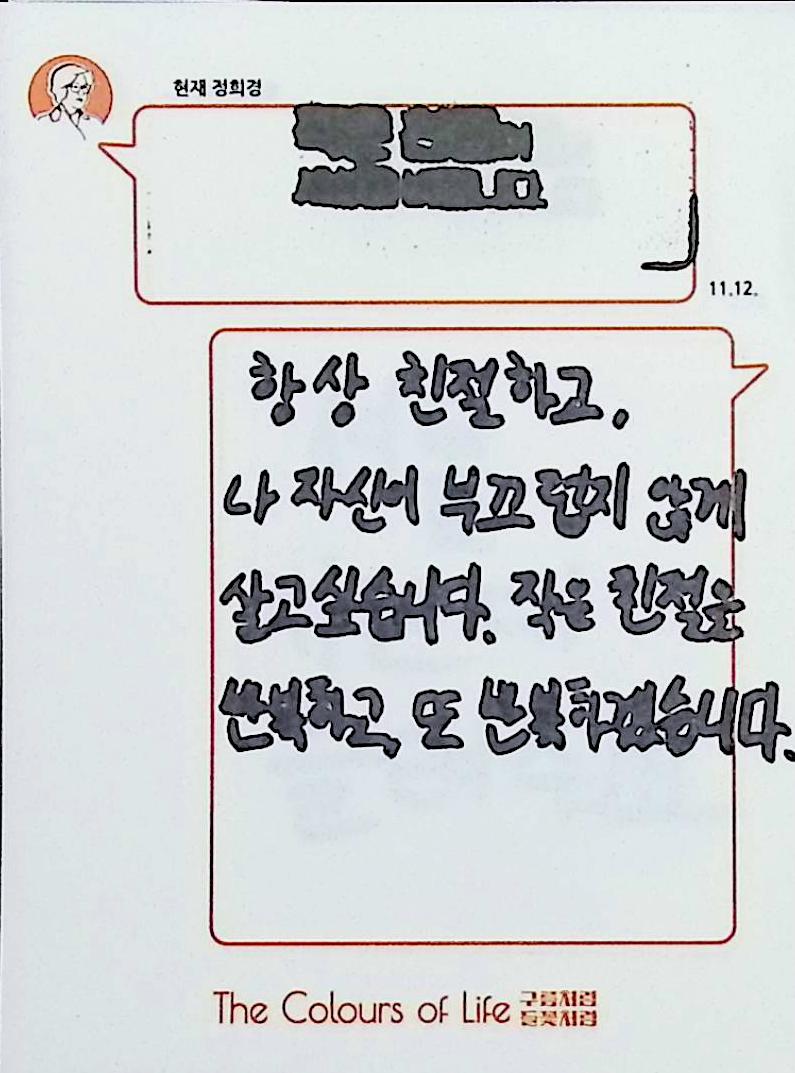 현재 정희경
11.12.
항상 친절하고,
나 자신에 부끄럽지 않게
살고싶습니다. 작은 친절을
반복하고, 또 반복하겠습니다.
The Colours of Life 구름처럼
들꽃처럼